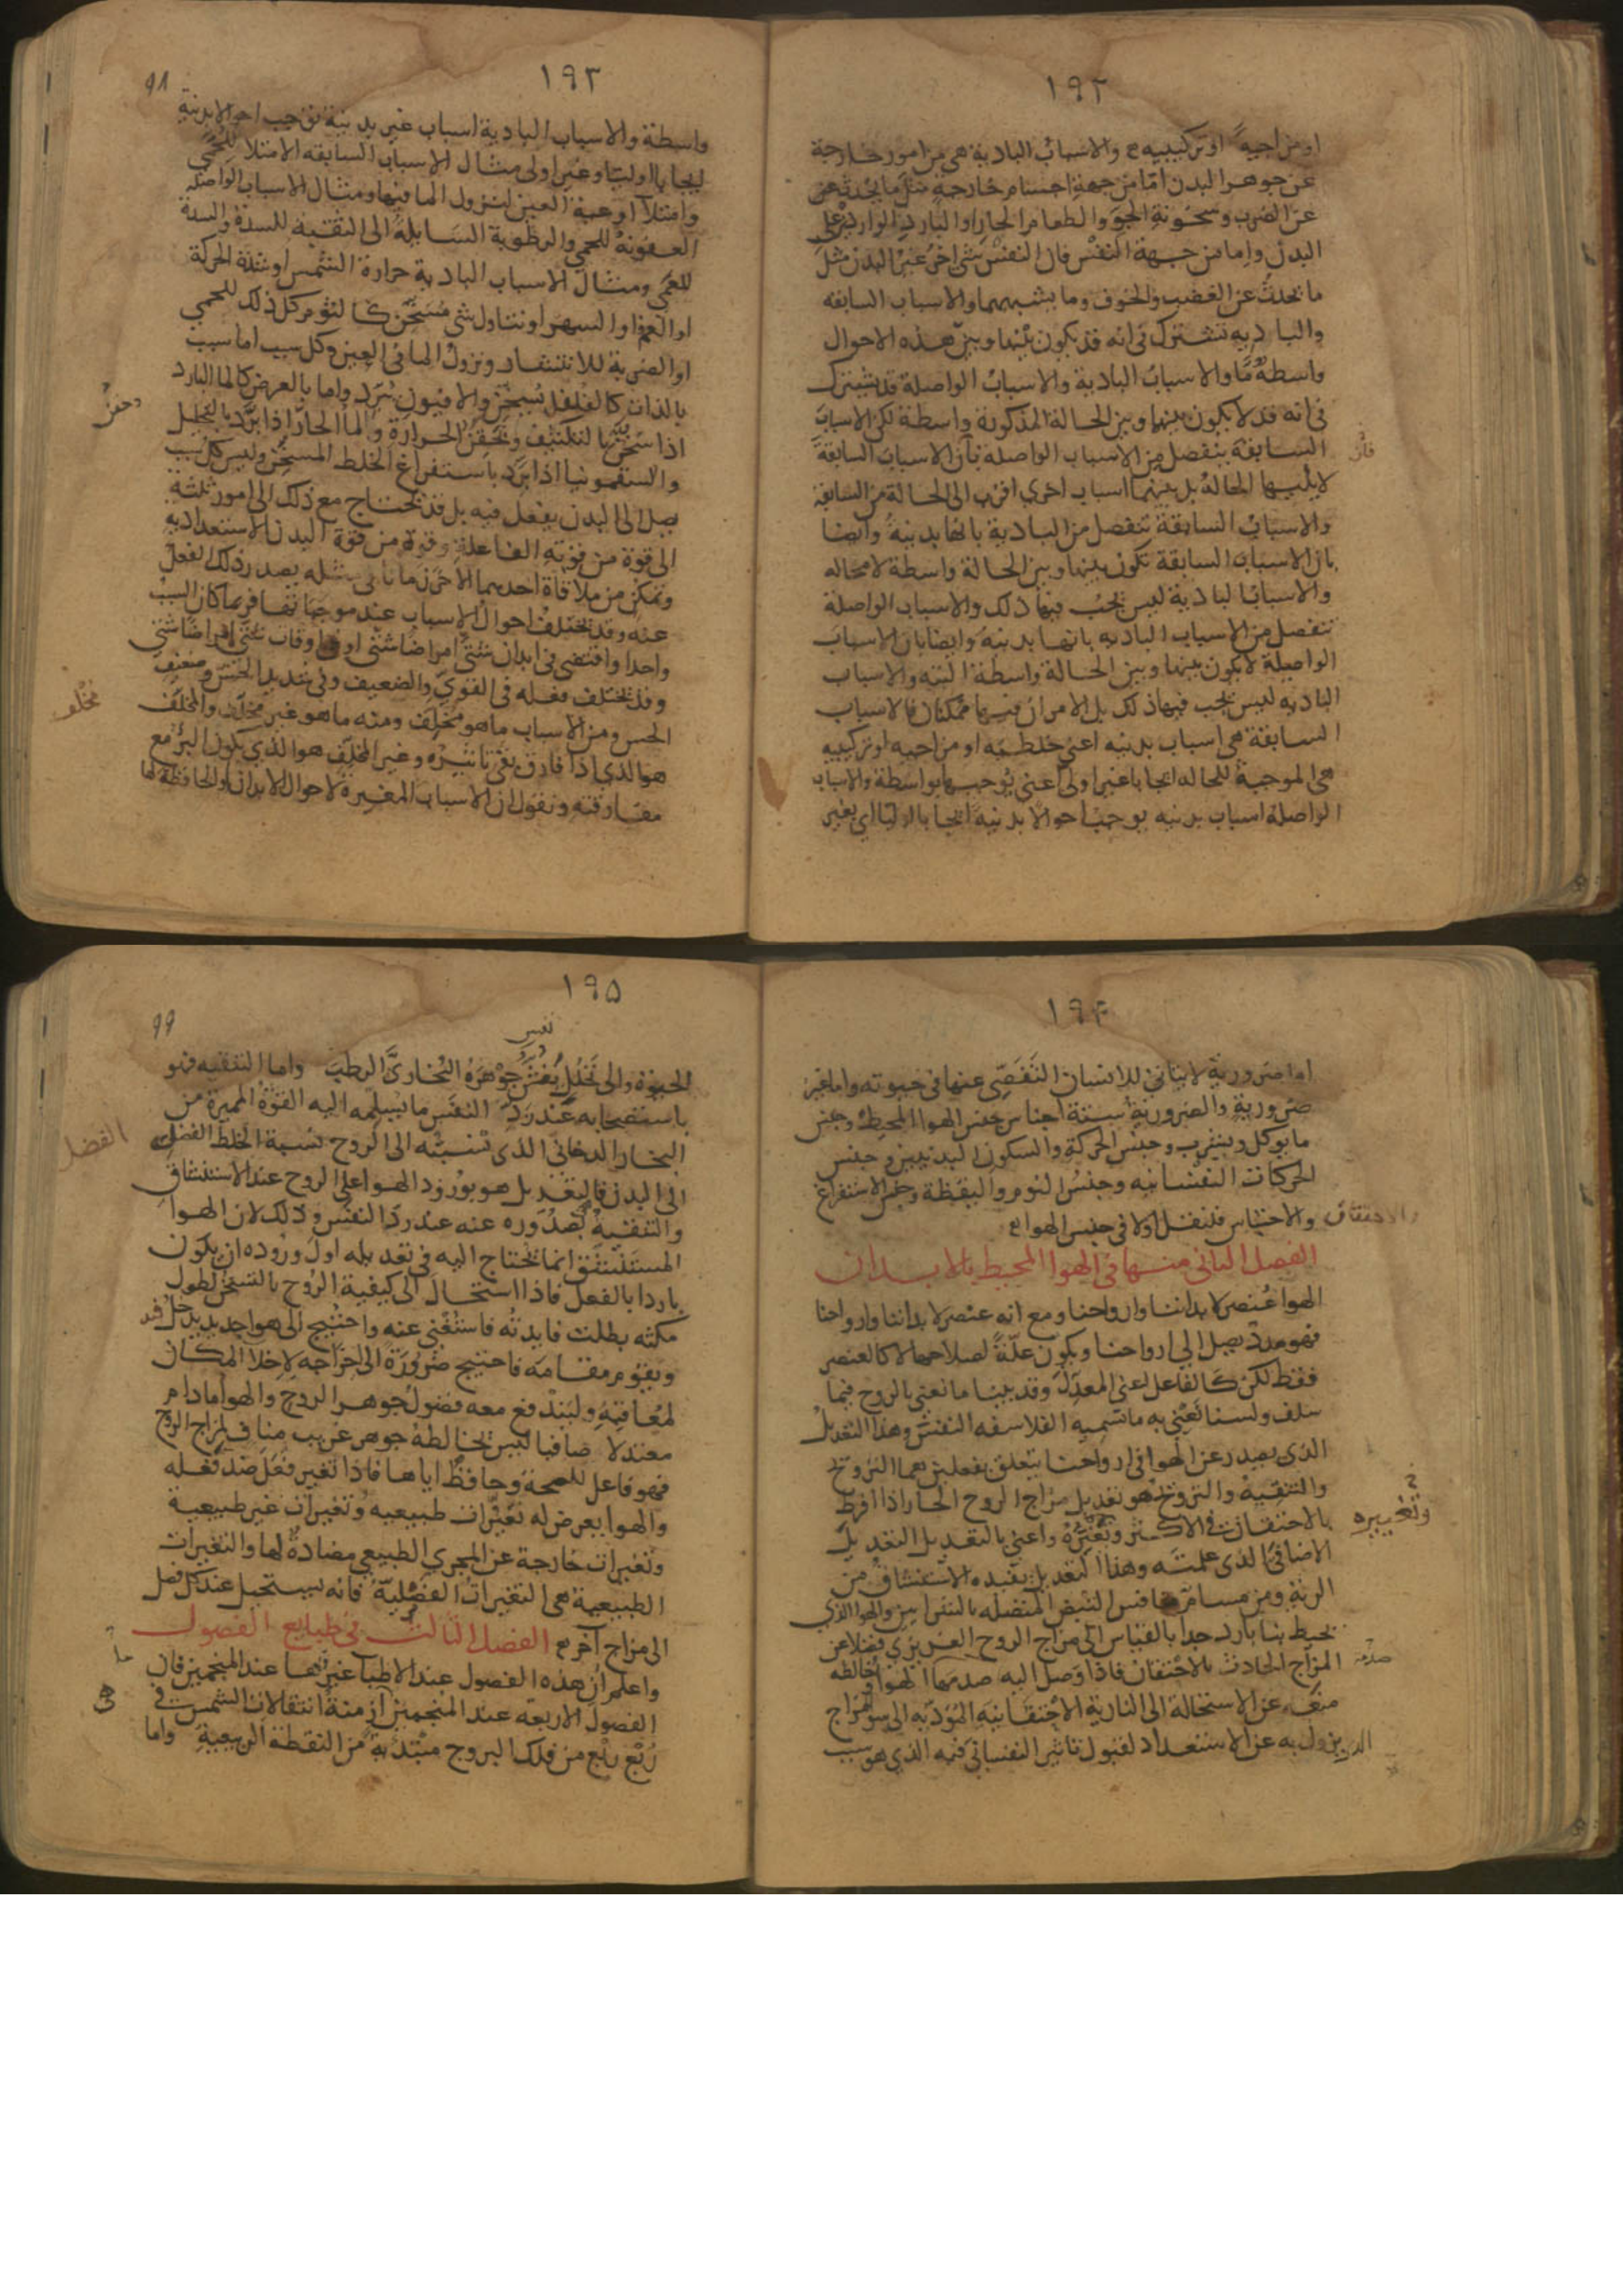 ١٩٢
او مزاجية او تركيبيه ع والاسباب البادية هى من امور خارجة
عن جوهر البدن امّا من جهة اجسام خارجه مثل ما يحدث عن
عن الضرب وسخونة الجوّ والطعام الحار او البارد الوارد على
البدن واما من جهة النفس فان النفس شى اخر غير البدن مثل
ما يحدث عن الغضب والخوف وما يشبههما والاسباب السابقه
والباديه تشترك فى انه قد يكون بينها وبين هذه الاحوال
واسطةٌ مّا والاسباب البادية والاسباب الواصلة قد يشترك
فى انه قد لا يكون بينها وبين الحالة المذكورة واسطة لكن الاسباب
السابقة ينفصل من الاسباب الواصلة بأن الاسباب السابقة
فان
لا يليها الحالة بل بينهما اسباب اخرى اقرب الى الحالة من السابقة
والاسباب السابقة تنفصل من البادية بانها بدنية وايضا
بان الاسباب السابقة تكون بينها وبين الحالة واسطة لا محاله
والاسباب البادية ليس يجب فيها ذلك والاسباب الواصلة
تنفصل من الاسباب الباديه بانها بدنيه وايضا بان الاسباب
الواصلة لا يكون بينها وبين الحالة واسطة البته والاسباب
الباديه ليس يجب فيها ذلك بل الامران فيها ممكنان فالاسباب
السابقة هى اسباب بدنيه اعنى خلطيه او مزاجيه او تركيبيه
هى الموجبة للحاله ايجابا غير اولى اعنى يوجبها بواسطة والاسباب
الواصلة اسباب بدنيه يوجب احوالا بدنيه ايجابا اوليا اى بغير
١٩٣
٩٨
واسطة والاسباب البادية اسباب غير بدنية توجب احوالا بدنية
ايجابا اوليا وغير اولى مثال الاسباب السابقه الامتلا للحمى
وامتلا اوعية العين لنزول الما فيها ومثال الاسباب الواصلة
العفونة للحمى والرطوبة السايلة الى الثقبة للسدة والسدة
للعمى ومثال الاسباب البادية حرارة الشمس او شدة الحركة
او الغم او السهر او تناول شى مسخن كالثوم كل ذلك للحمى
او الضربة للانتشار ونزول الما فى العين وكل سبب اما سبب
بالذات كالفلفل يسخن والافيون يبرد واما بالعرض كالما البارد
اذا سخن بالتكثيف وتحقن الحرارة والما الحار اذا برّد بالتحليل
وحقن
والسقمونيا اذا برد باستفراغ الخلط المسخن وليس كل سبب
يصل الى البدن يفعل فيه بل قد يحتاج مع ذلك الى امور ثلثة
الى قوة من قوته الفاعلة وقوة من قوة البدن الاستعدادية
وتمكن من ملاقاة احدهما الاخر زمانا فى مثله يصدر ذلك الفعل
عنه وقد تختلف احوال الاسباب عند موجباتها فربما كان السبب
واحدا واقتضى فى ابدان شتى امراضا شتى او فى اوقات شتى امراضا شتى
وقد يختلف فعله فى القوى والضعيف وفى شديد الحس وضعيف
الحس ومن الاسباب ما هو مخلف ومنه ما هو غير مخلف والمخلف
مخلف
هو الذى اذا فارق بقى تاثيره وغير المخلف هو الذى يكون البرؤ مع
مفارقته ونقول ان الاسباب المغيرة لاحوال الابدان والحافظة لها
١٩۴
اما ضرورية لا يتاتى للانسان التفصّى عنها فى حيوته واما غير
ضرورية والضرورية ستة اجناس جنس الهوا المحيط وجنس
ما يوكل ويشرب وجنس الحركة والسكون البدنيين وجنس
الحركات النفسانيه وجنس النوم واليقظة وجنس الاستفراغ
والاحتباس فلنقل اولا فى جنس الهوا ع
والاحتقان
الفصل الثانى منها فى الهوا المحيط بالابدان
الهوا عنصر لابداننا وارواحنا ومع انه عنصر لابداننا وارواحنا
فهو مدد يصل الى ارواحنا ويكون علّةً لصلاحها لا كالعنصر
فقط لكن كالفاعل اعنى المعدل وقد بينا ما نعنى بالروح فيما
سلف ولسنا نعنى به ما تسميه الفلاسفه النفس وهذا التعديل
الذى يصدر عن الهوا فى ارواحنا يتعلق بفعلين هما الترويح
والتنقية والترويح هو تعديل مزاج الروح الحار اذا افرط
بالاحتقان فى الاكثر وتغيره واعنى بالتعديل التعديل
وتغييره
الاضافى الذى علمته وهذا التعديل يفيده الاستنشاق من
الرية ومن مسام منافس النبض المتصله بالشرايين والهوا الذى
يحيط بنا بارد جدا بالقياس الى مزاج الروح الغريزى فضلا عن
المزاج الحادث بالاحتقان فاذا وصل اليه صدمها الهوا وخالطه
صدمه
منعه عن الاستحالة الى النارية الاحتقانيه المؤديه الى سو مزاج
يزول به عن الاستعداد لقبول تاثير النفسانى فيه الذى هو سبب
١٩۵
٩٩
نفس
الحيوة والى تحلل نفس جوهره البخارىّ الرطب واما التنقيه فهو
باستصحابه عند ردّ النفس ما يسلمه اليه القوة المميزة من
البخار الدخانى الذى نسبته الى الروح نسبة الخلط الفضلى
الفضل
الى البدن فالتعديل هو بورود الهوا على الروح عند الاستنشاق
والتنقية بصدوره عنه عند ردّ النفس وذلك لان الهوا
المستنشق انما يحتاج اليه فى تعديله اول وروده ان يكون
باردا بالفعل فاذا استحال الى كيفية الروح بالتسخن لطول
مكثه بطلت فايدته فاستغنى عنه واحتيج الى هوا جديد يدخل
ويقوم مقامه فاحتيج ضرورة الى اخراجه لاخلا المكان
لمعاقبه وليندفع معه فضول جوهر الروح والهوا ما دام
معتدلا صافيا ليس يخالطه جوهر غريب مناف لمزاج الروح
فهو فاعل للصحة وحافظ اياها فاذا تغير فعل ضد فعله
والهوا يعرض له تغيرات طبيعيه وتغيرات غير طبيعية
وتغيرات خارجة عن المجرى الطبيعى مضادة لها والتغيرات
الطبيعية هى التغيرات الفصلية فانه يستحيل عند كل فصل
الى مزاج آخر ع الفصل الثالث فى طبايع الفصول
واعلم ان هذه الفصول عند الاطبا غيرها عند المنجمين فان
الفصول الاربعه عند المنجمين ازمنة انتقالات الشمس فى
هى
رُبْع رُبْع من فلك البروج مبتدئة من النقطة الربيعية واما